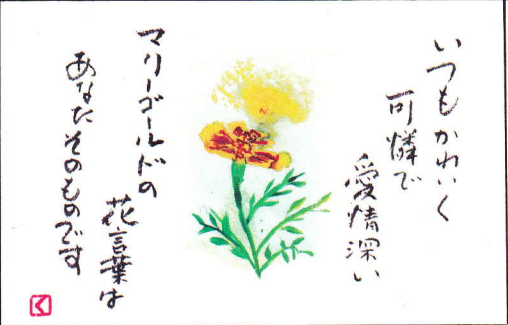 いつもかわいく
可憐で
愛情深い
マリーゴールドの
花言葉は
あなたそのものです
く